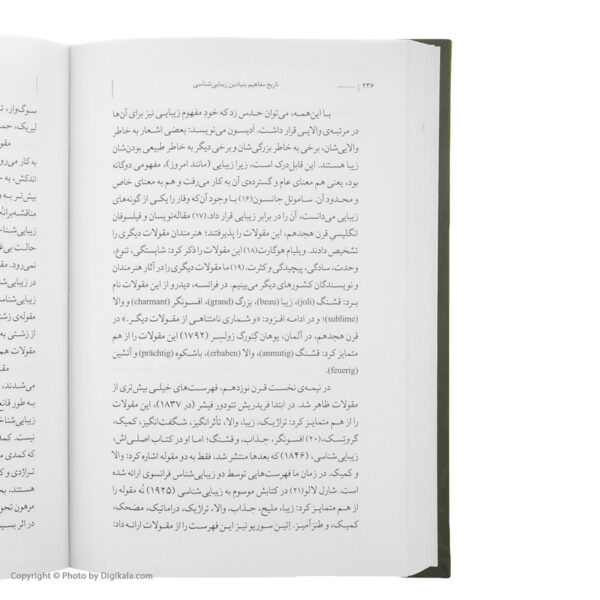 ۲۳۶ | تاریخ مفاهیم بنیادین زیبایی‌شناسی
با این‌همه، می‌توان حدس زد که خودِ مفهوم زیبایی نیز برای آن‌ها
در مرتبه‌ی والایی قرار داشت. اَدیسون می‌نویسد: بعضی اشعار به خاطر
والایی‌شان، برخی به خاطر بزرگی‌شان و برخی دیگر به خاطر طبیعی بودن‌شان
زیبا هستند. این قابل‌درک است، زیرا زیبایی (مانند امروز)، مفهومی دوگانه
بود، یعنی هم معنای عام و گسترده‌ی آن به کار می‌رفت و هم به معنای خاص
و محدود آن. ساموئل جانسون(۱۶) با وجود آن‌که وقار را یکی از گونه‌های
زیبایی می‌دانست، آن را در برابر زیبایی قرار داد.(۱۷) مقاله‌نویسان و فیلسوفان
انگلیسیِ قرن هجدهم، این مقولات را پذیرفتند؛ هنرمندان مقولات دیگری را
تشخیص دادند. ویلیام هوگارت(۱۸) این مقولات را ذکر کرد: شایستگی، تنوع،
وحدت، سادگی، پیچیدگی و کثرت.(۱۹) ما مقولات دیگری را در آثار هنرمندان
و نویسندگان کشورهای دیگر می‌بینیم. در فرانسه، دیدرو از این مقولات نام
برد: قشنگ (joli)، زیبا (beau)، بزرگ (grand)، افسونگر (charmant) و والا
(sublime)؛ و در ادامه افزود: «و شماری نامتناهی از مقولات دیگر.» در
قرن هجدهم، در آلمان، یوهان گئورگ زولسِر (۱۷۹۲) این مقولات را از هم
متمایز کرد: قشنگ (anmutig)، والا (erhaben)، باشکوه (prächtig) و آتشین
(feuerig).
در نیمه‌ی نخست قرن نوزدهم، فهرست‌های خیلی بیش‌تری از
مقولات ظاهر شد. در ابتدا فریدریش تئودور فیشر (در ۱۸۳۷)، این مقولات
را از هم متمایز کرد: تراژیک، زیبا، والا، تأثرانگیز، شگفت‌انگیز، کمیک،
گروتسک،(۲۰) افسونگر، جذاب، و قشنگ؛ اما او در کتاب اصلی‌اش،
زیبایی‌شناسی، (۱۸۴۶) که بعدها منتشر شد، فقط به دو مقوله اشاره کرد: والا
و کمیک. در زمان ما فهرست‌هایی توسط دو زیبایی‌شناس فرانسوی ارائه شده
است. شارل لالو(۲۱) در کتابش موسوم به زیبایی‌شناسی (۱۹۲۵) نُه مقوله را
از هم متمایز کرد: زیبا، ملیح، جذاب، والا، تراژیک، دراماتیک، مضحک،
کمیک، و طنزآمیز. اِتین سوریو نیز این فهرست را از مقولات ارائه داد:
سوگ‌وار،
لیریک،
به کار می‌رو
اندکش، به
بیش‌تر به
زیبایی‌شناخ
حالت
نمی‌رود.
در زیبایی
زیبایی‌شناس
مقوله‌ی زشت
از زشتی به
مقولات هم
می‌شدند،
به طور قانع
زیبایی‌شناخ
نیست. کمد
که کمدی
تراژدی و ک
هستند،
مرهون نحو
در اثر
Copyright © Photo by Digikala.com